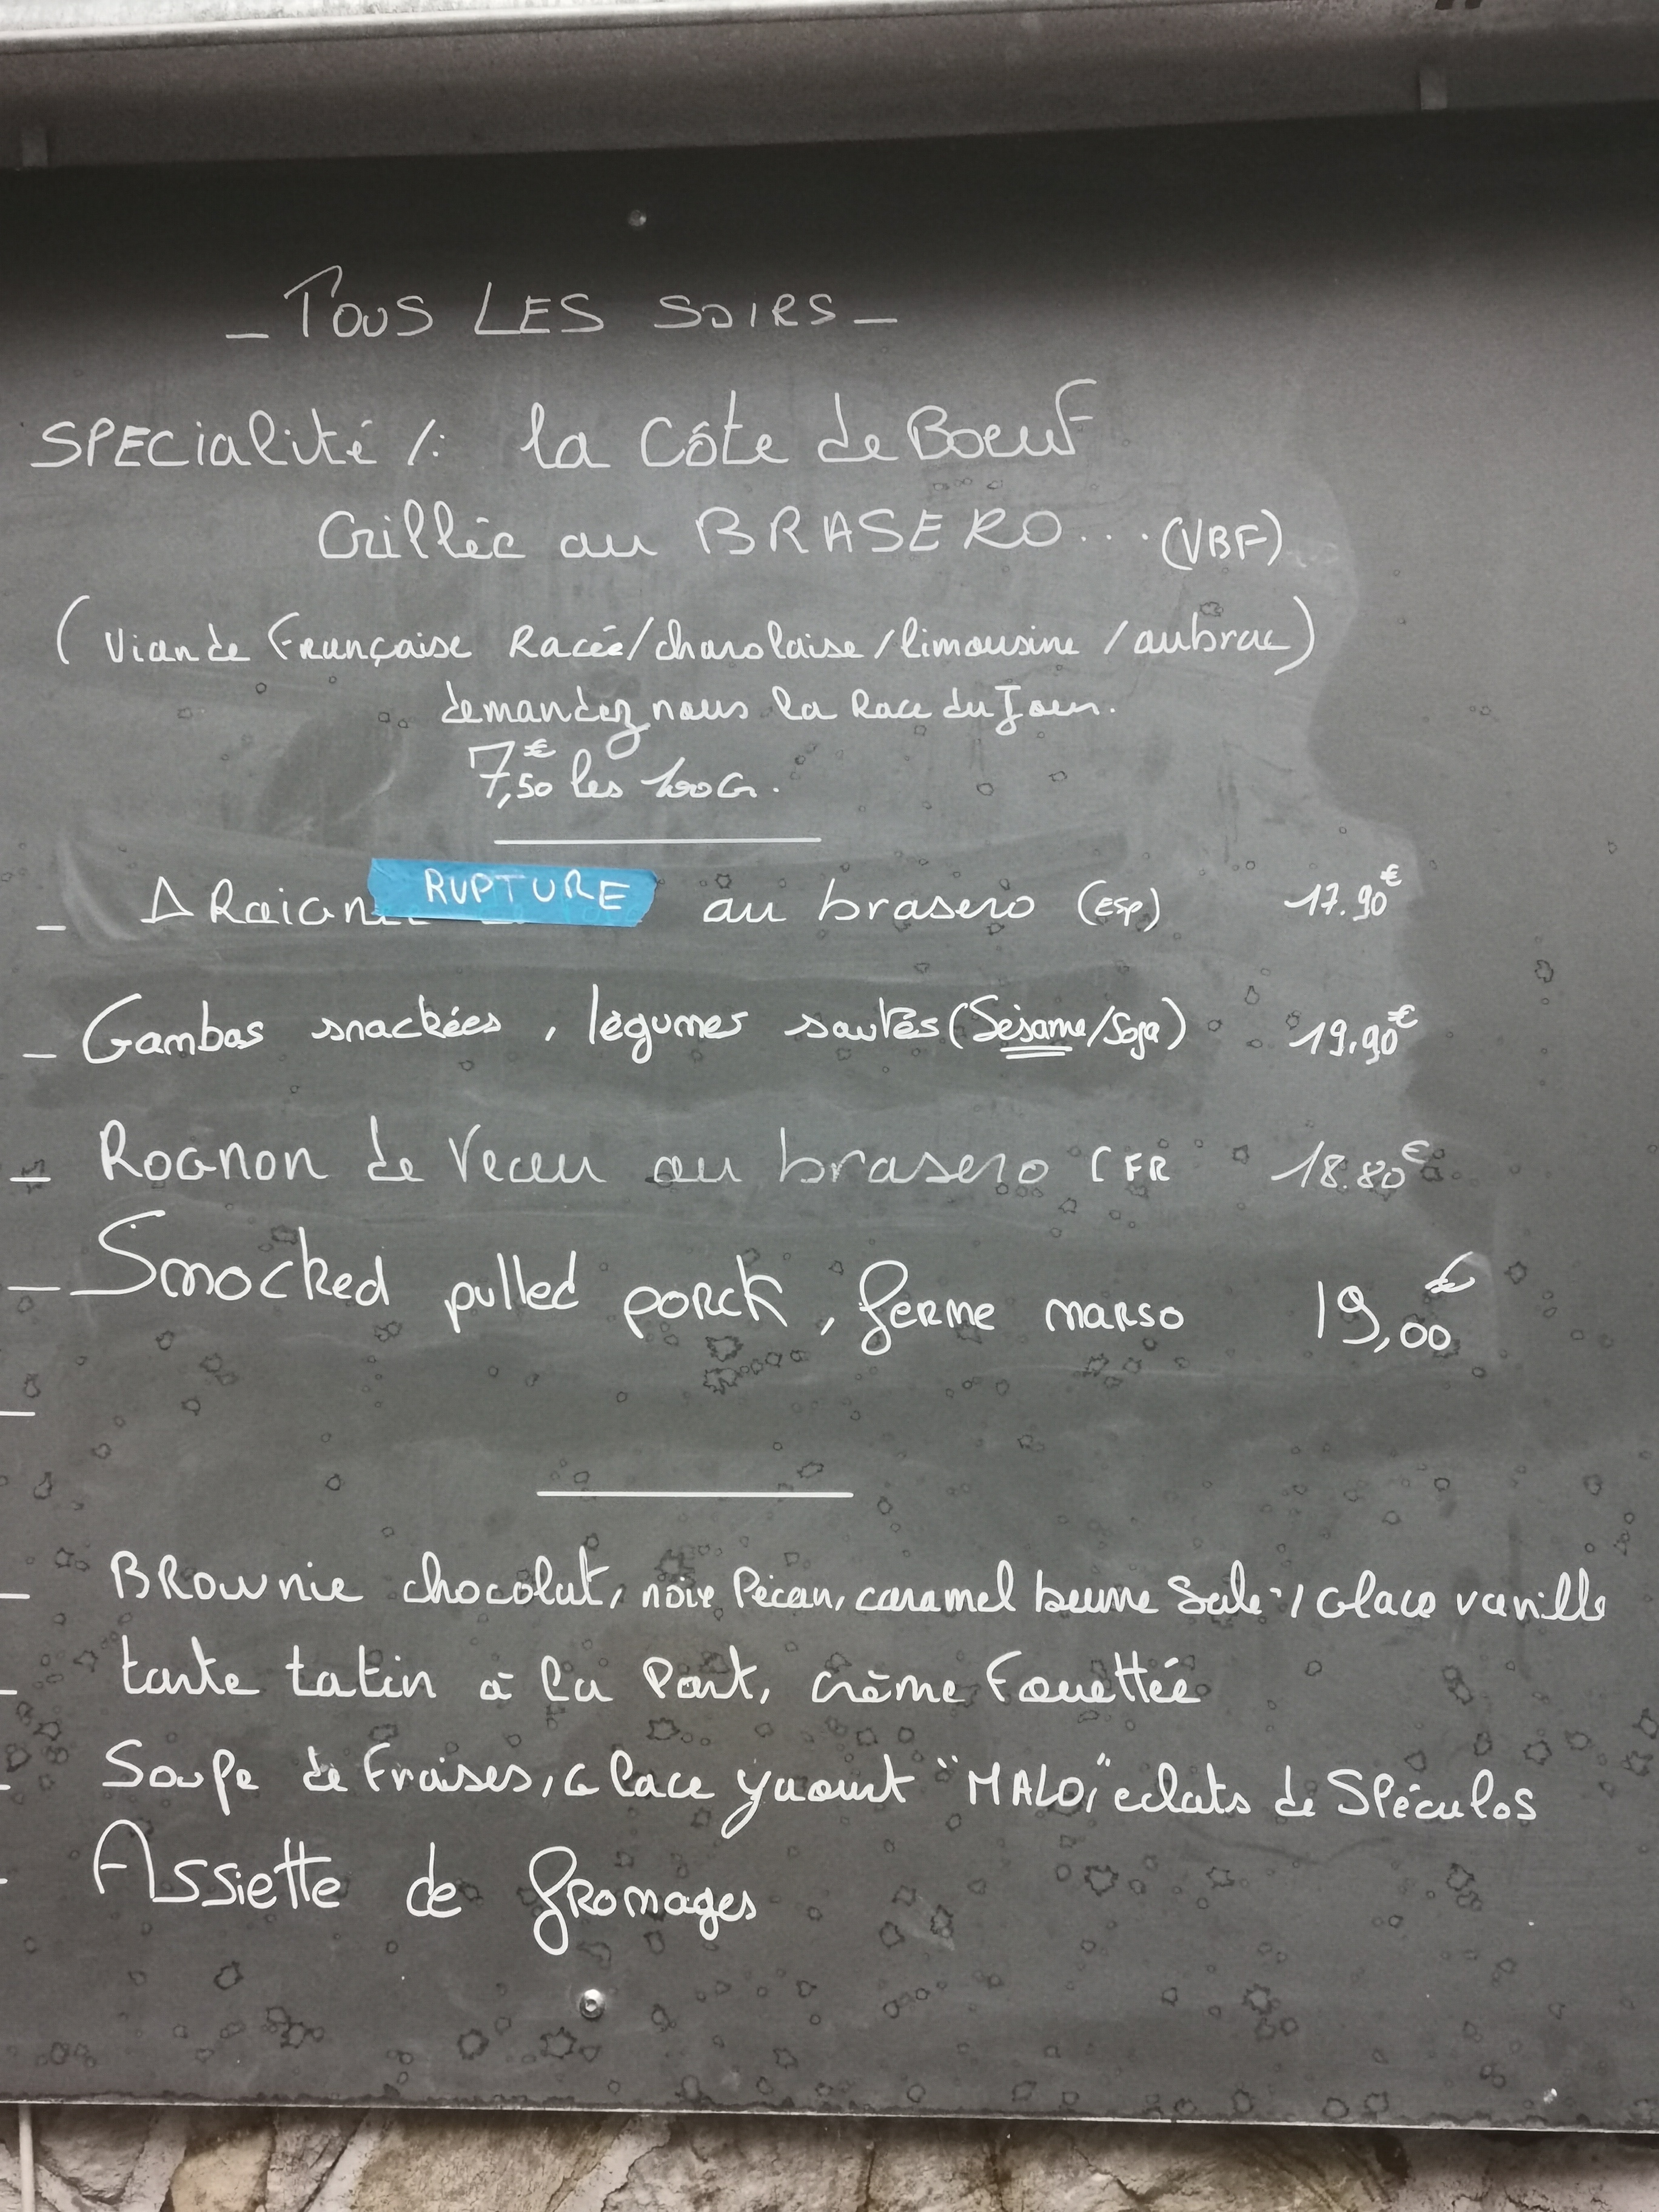 _ TOUS LES SOIRS _
SPECialité /: la Côte de Boeuf
Grillée au BRASERO... (VBF)
(Viande Française Racée/charolaise/limousine/aubrac)
demandez nous la Race du Jour.
7,50€ les 100G.
_ ARaign RUPTURE au brasero (ESP) 17.90€
_ Gambas snackées, légumes sautés (Sésame/Soja) 19,90€
_ ROGNON de Veau au brasero (FR 18.80€
_ Smocked pulled porck, ferme marso 19,00€
_
_ BROWNie chocolat, noix Pécan, caramel beurre Salé, Glace vanille
_ tarte tatin à la Part, crème Fouettée
- Soupe de Fraises, Glace yaourt "MALO", eclats de Spéculos
- Assiette de fromages